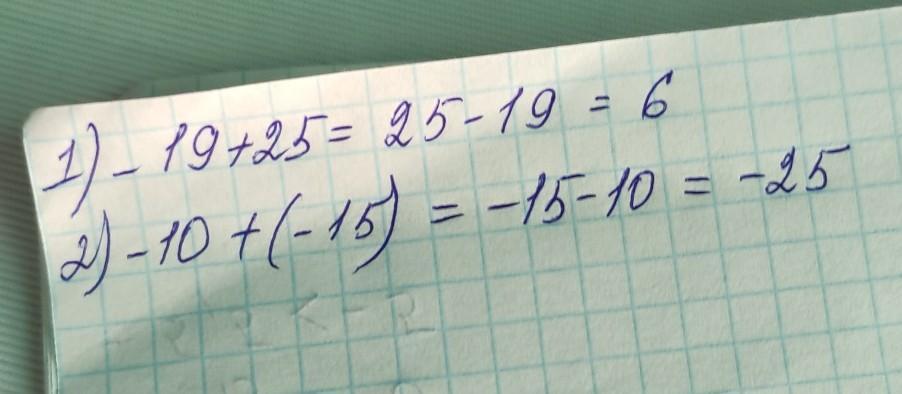 1) - 19+25= 25-19 = 6
2) -10 + (-15) = -15-10 = -25